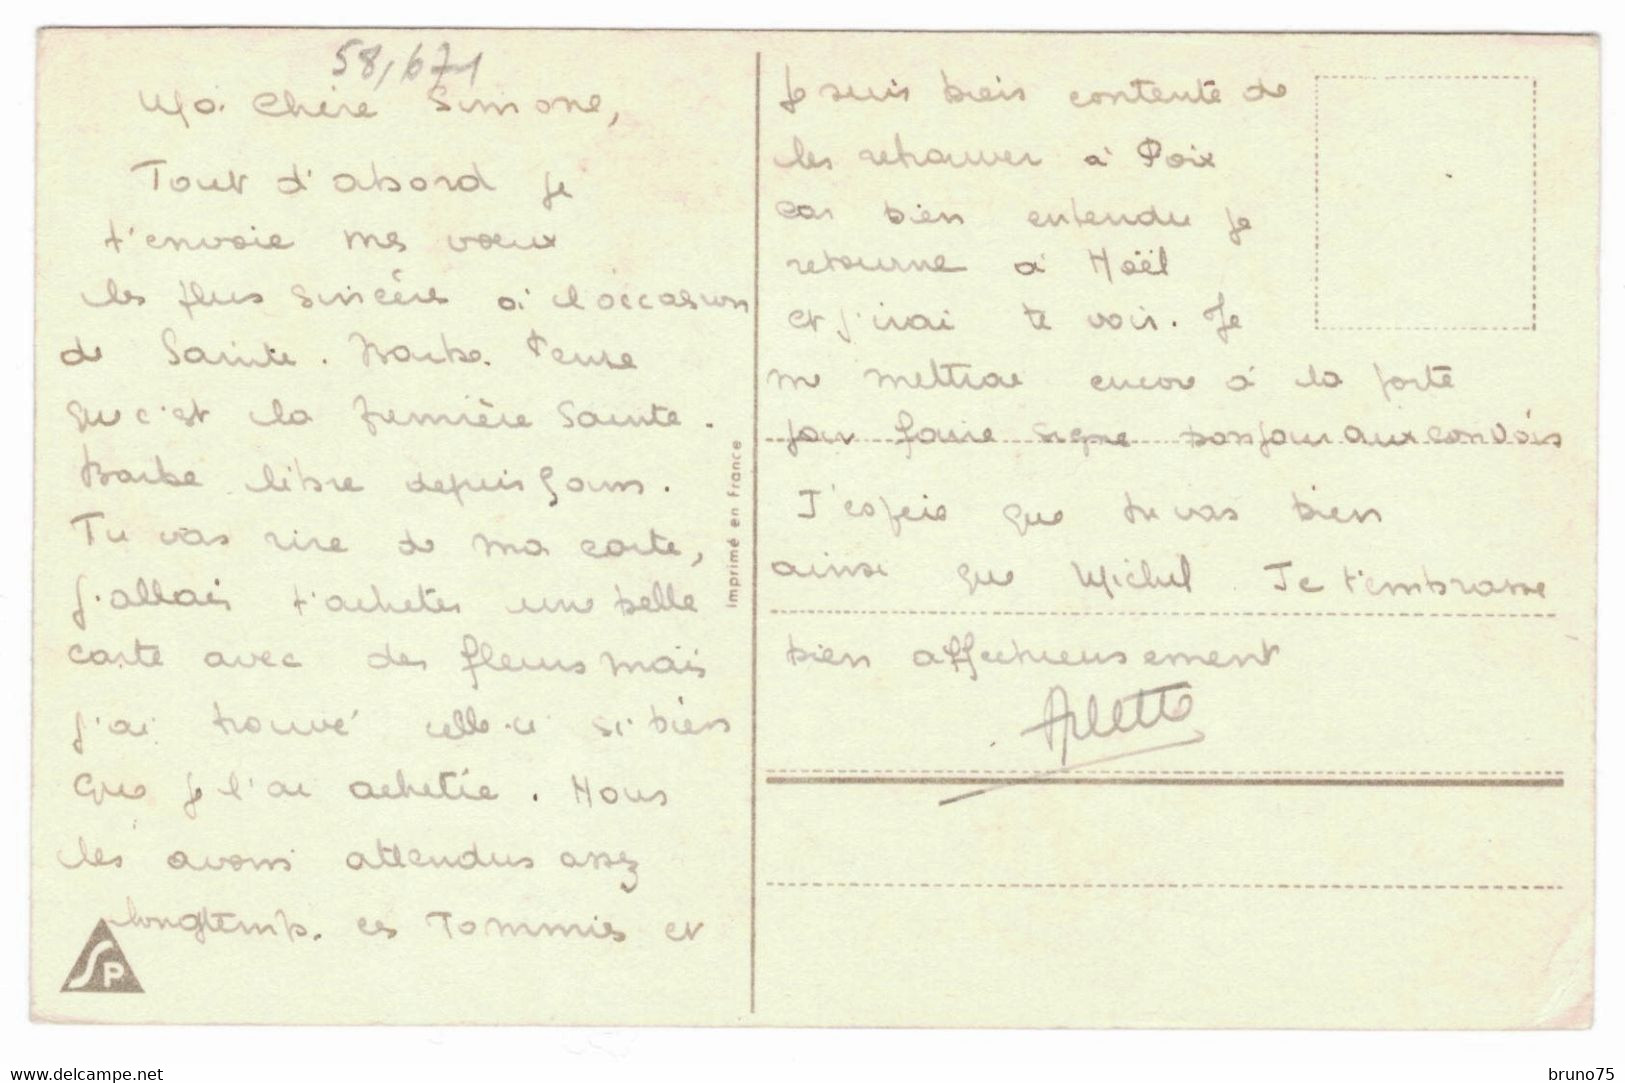 58,671
Ma Chère Simone,
Tout d'abord je
t'envoie mes vœux
les plus sincères à l'occasion
de Sainte. Barbe. Pense
que c'est la première Sainte.
Barbe libre depuis 5 ans.
Tu vas rire de ma carte,
j'allais t'acheter une belle
carte avec des fleurs mais
j'ai trouvé celle-ci si bien
que je l'ai achetée. Nous
les avons attendus assez
longtemps. ces Tommies et
SP
imprimé en france
Je suis bien contente de
les retrouver à Poix
car bien entendu je
retourne à Noël
et j'irai te voir. Je
me mettrai encore à la porte
pour faire signe bonjour aux convois
J'espère que tu vas bien
ainsi que Michel. Je t'embrasse
bien affectueusement
Arlette
www.delcampe.net
bruno75